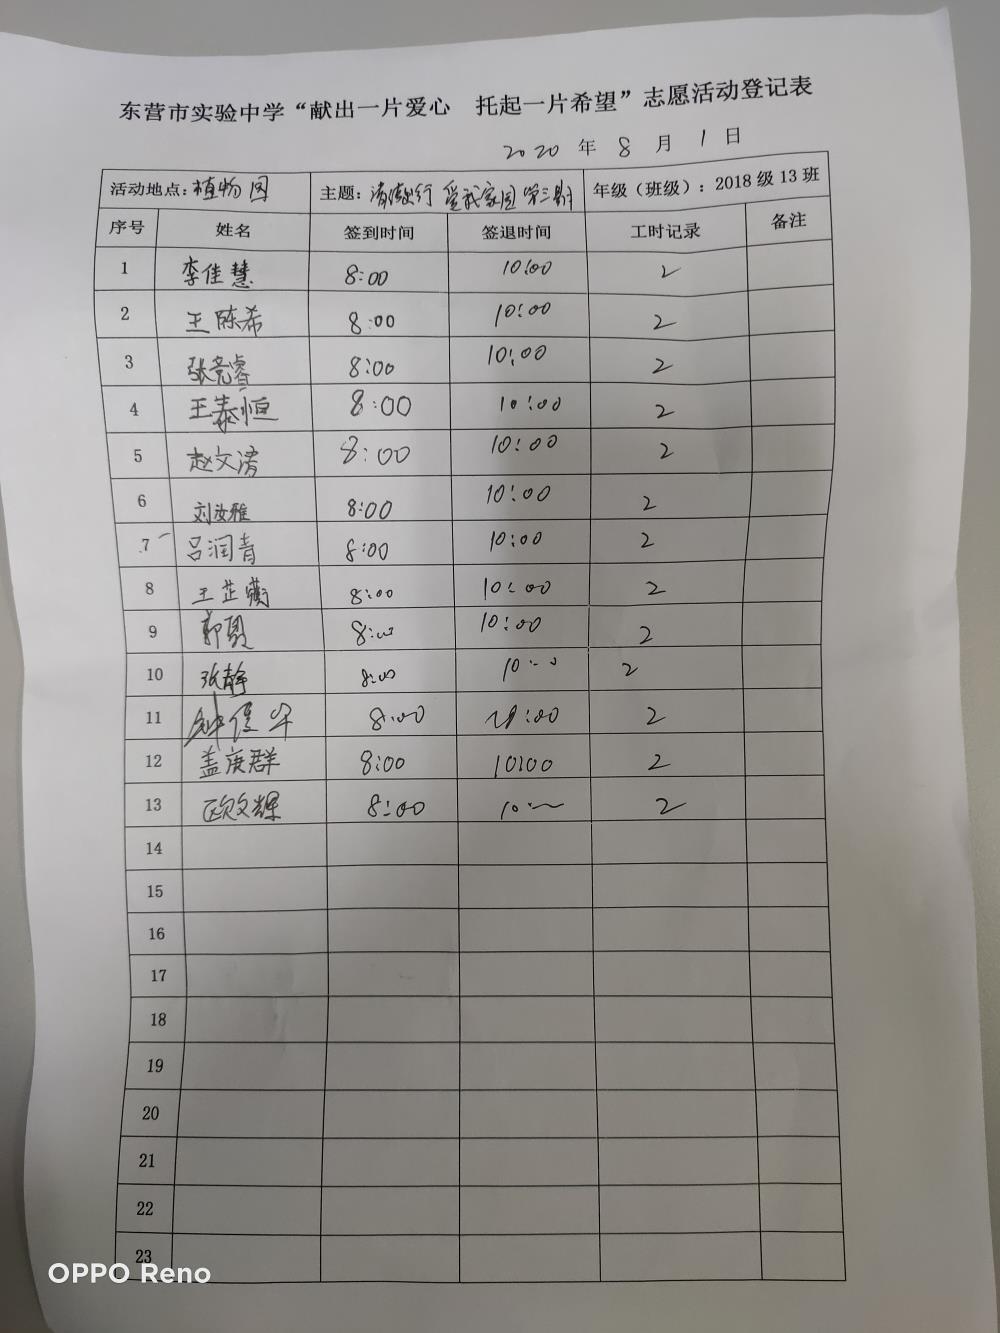 东营市实验中学“献出一片爱心 托起一片希望”志愿活动登记表
2020 年 8 月 1 日
活动地点：植物园 主题： 爱我家园 第三期 年级（班级）：2018 级 13 班
序号 姓名 签到时间 签退时间 工时记录 备注
1 李佳慧 8:00 10:00 2
2 王陈希 8:00 10:00 2
3 张亮睿 8:00 10:00 2
4 王泰恒 8:00 10:00 2
5 赵文清 8:00 10:00 2
6 刘汝雅 8:00 10:00 2
7 吕润青 8:00 10:00 2
8 王芷蘅 8:00 10:00 2
9 8:00 10:00 2
10 张静 8:00 10:00 2
11 8:00 10:00 2
12 盖庚群 8:00 10:00 2
13 欧文辉 8:00 10:00 2
14
15
16
17
18
19
20
21
22
23
OPPO Reno